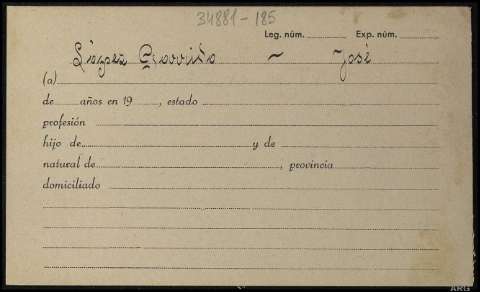 34881-185
Leg. núm. Exp. núm.
López Garrido - José
(a)
de años en 19 , estado
profesión
hijo de y de
natural de , provincia
domiciliado
ARG